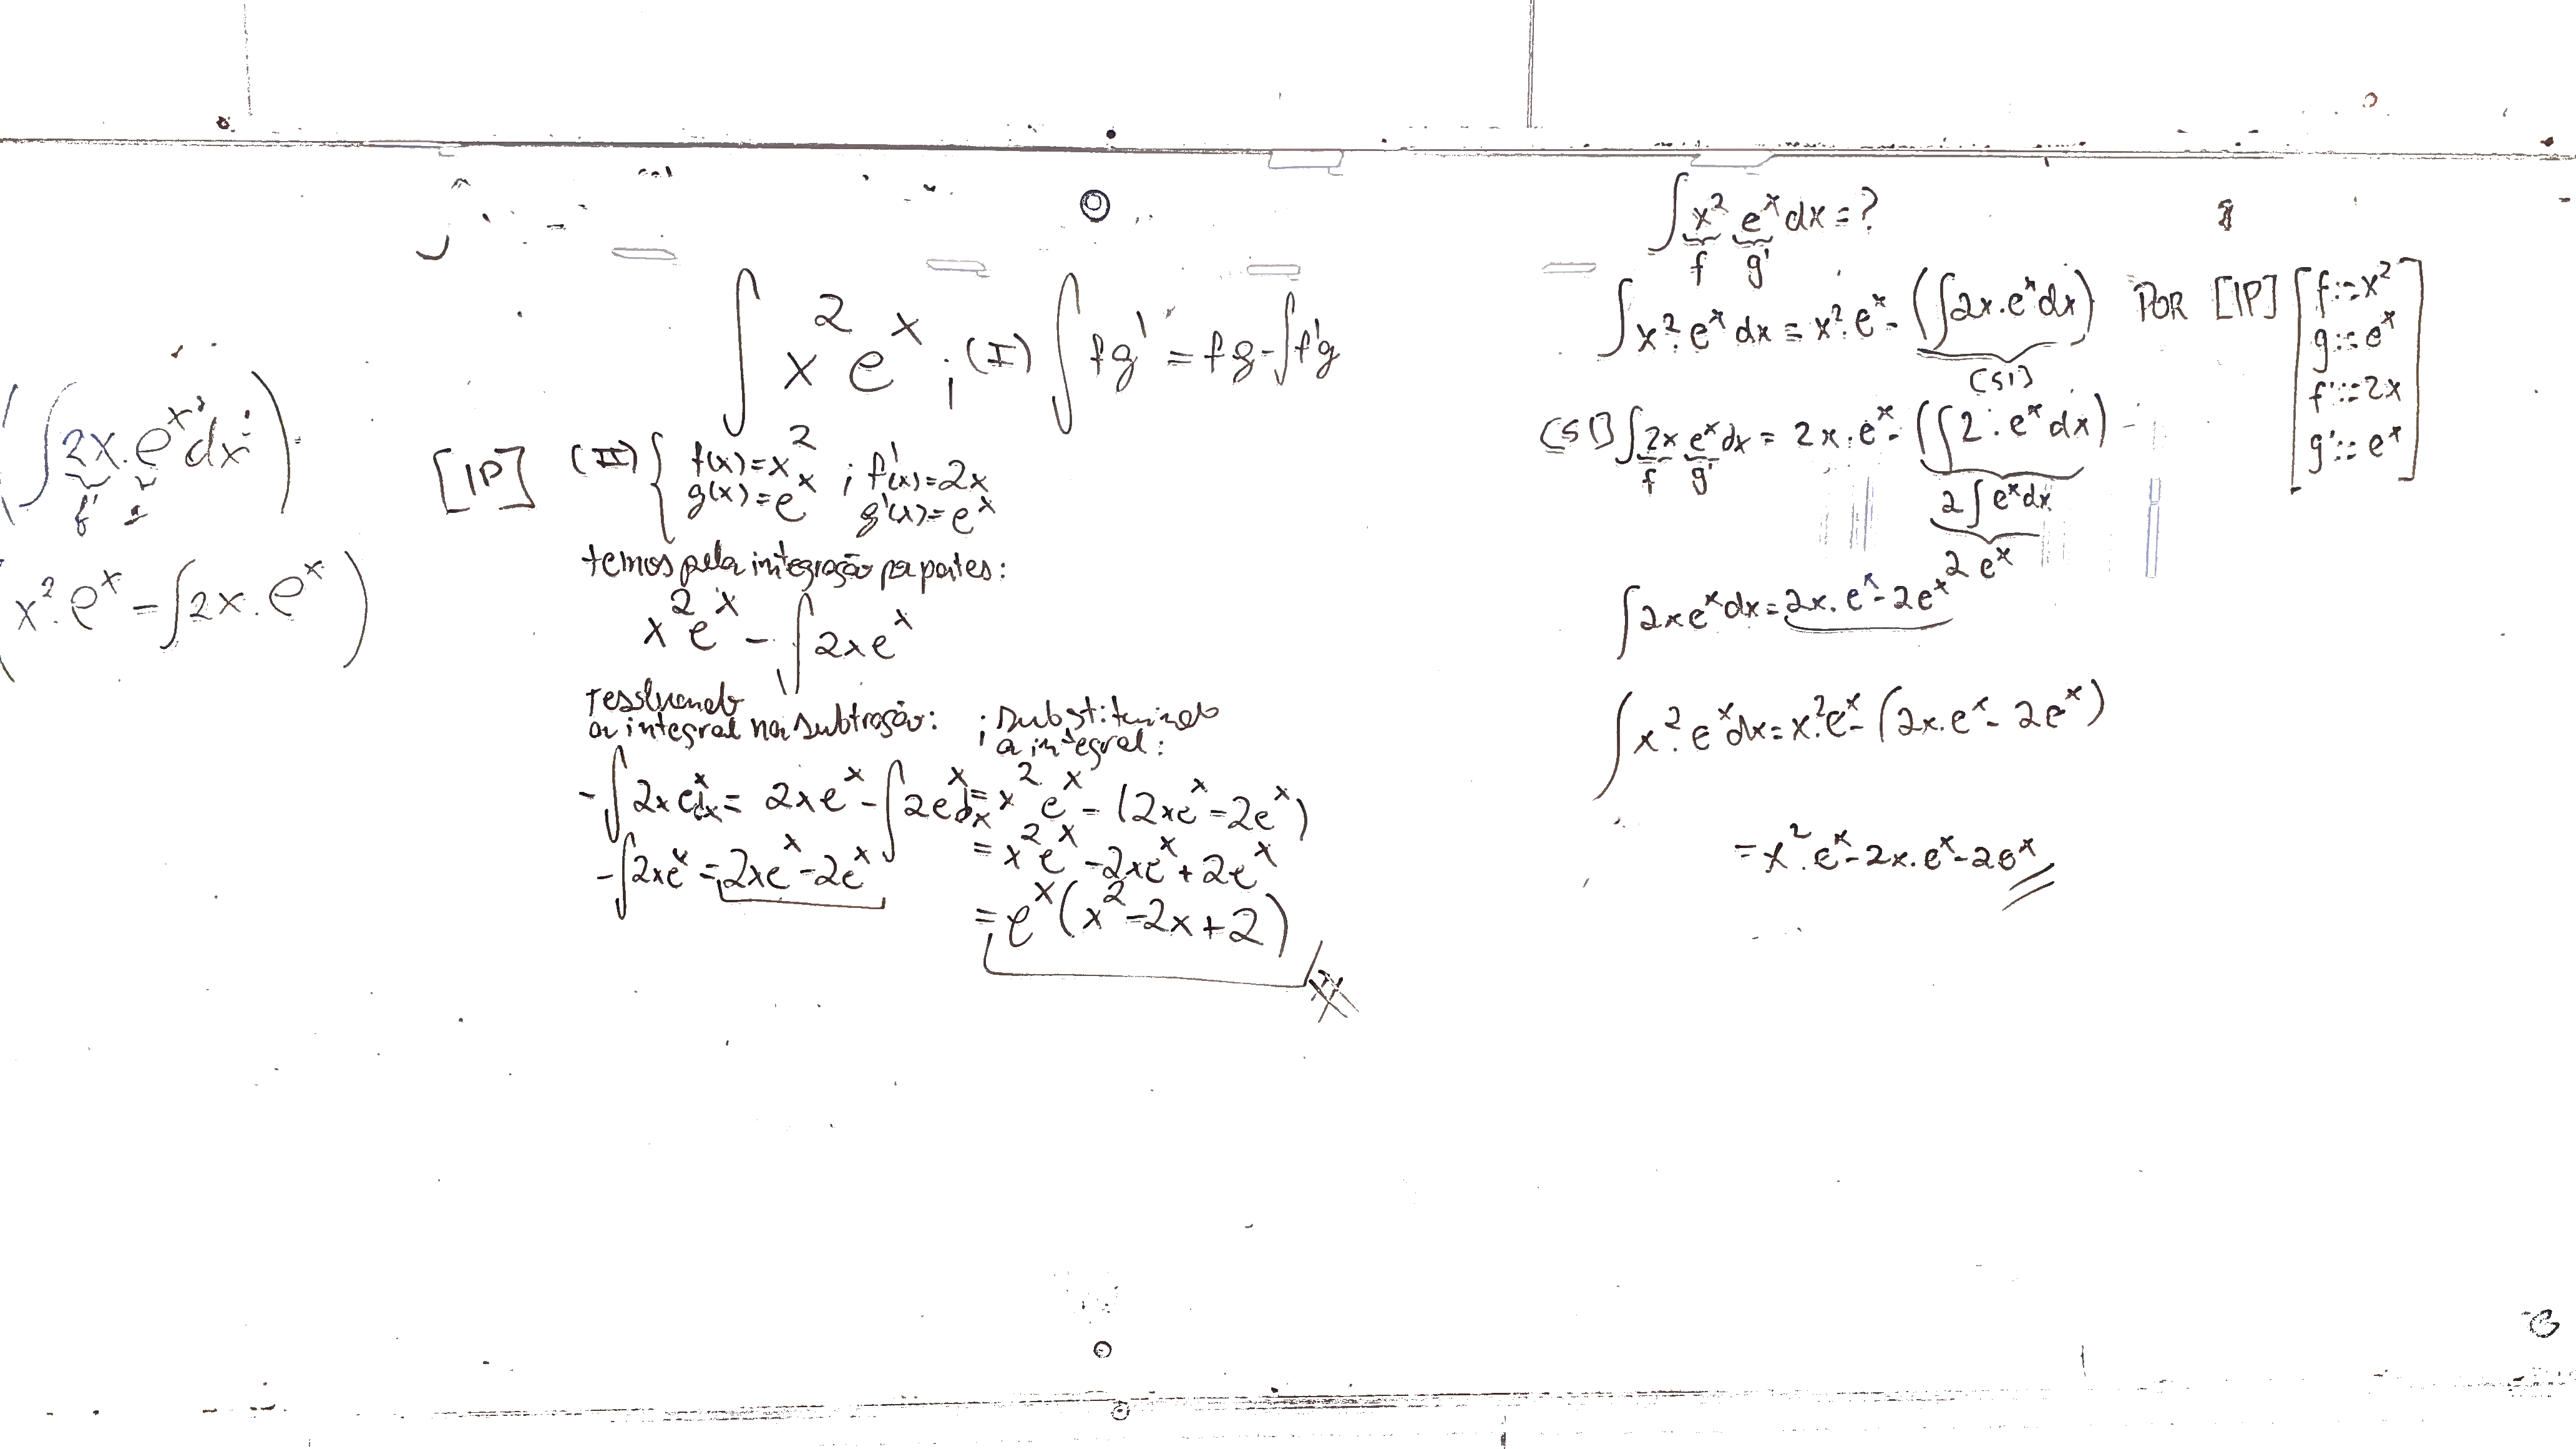 ∫2x.eˣdx
f' g
x².eˣ - ∫2x.eˣ
∫x²eˣ ; (I) ∫fg' = fg-∫f'g
[IP] (II) { f(x)=x² ; f'(x)=2x
g(x)=eˣ g'(x)=eˣ
temos pela integração por partes:
x²eˣ - ∫2xeˣ
resolvendo
a integral na subtração:
-∫2xeˣdx = 2xeˣ - ∫2eˣdx
-∫2xeˣ = 2xeˣ-2eˣ
; substituindo
a integral:
= x²eˣ - (2xeˣ-2eˣ)
= x²eˣ - 2xeˣ + 2eˣ
= eˣ(x²-2x+2)
∫x² eˣ dx = ?
f g'
∫x².eˣ dx = x².eˣ - (∫2x.eˣdx) POR [IP] [f:=x²
g:=eˣ
f':=2x
g':=eˣ]
(S1)
(S1) ∫2x eˣ dx = 2x.eˣ - (∫2.eˣdx)
f g'
2∫eˣdx
2eˣ
∫2xeˣdx = 2x.eˣ - 2eˣ
∫x².eˣdx = x².eˣ - (2x.eˣ - 2eˣ)
= x².eˣ - 2x.eˣ - 2eˣ